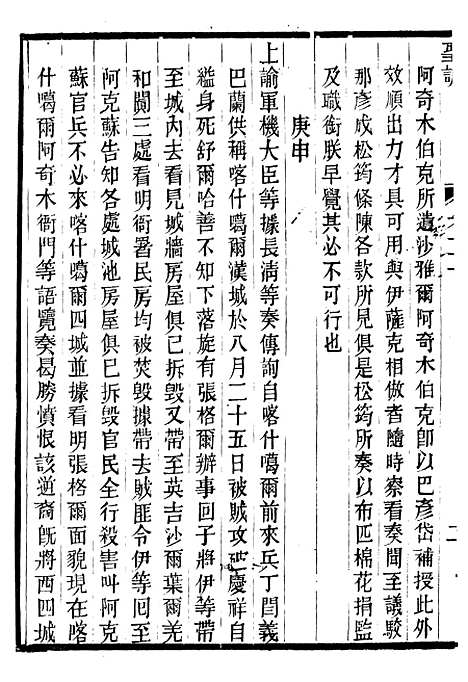 聖訓
阿奇木伯克所遺沙雅爾阿奇木伯克卽以巴彥岱補授此外
效順出力才具可用與伊薩克相倣者隨時察看奏聞至議駁
那彥成松筠條陳各款所見俱是松筠所奏以布匹棉花捐監
及職銜朕早覺其必不可行也
庚申
上諭軍機大臣等據長清等奏傳詢自喀什噶爾前來兵丁閆義
巴蘭供稱喀什噶爾漢城於八月二十五日被賊攻破慶祥自
縊身死舒爾哈善不知下落旋有張格爾辦事回子將伊等帶
至城內看見城牆房屋俱已拆毀又帶至英吉沙爾葉爾羌
和闐三處看明衙署民房均被焚毀據帶去賊匪令伊等回至
阿克蘇告知各處城池房屋俱已拆毀官民全行殺害叫阿克
蘇官兵不必來喀什噶爾四城並據看明張格爾面貌現在喀
什噶爾阿奇木衙門等語覽奏曷勝憤恨該逆裔旣將西四城